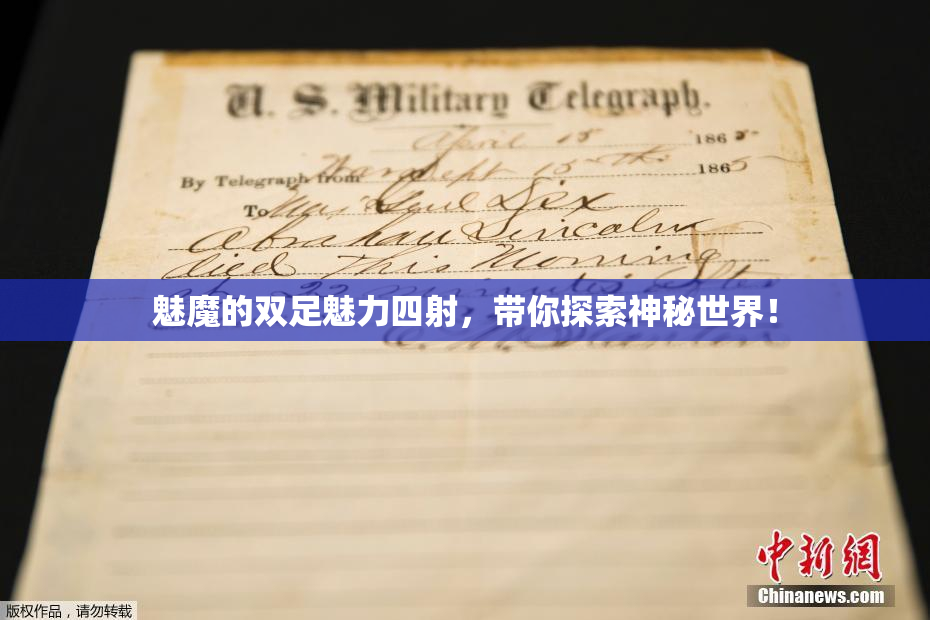 U. S. Military Telegraph.
April 15 1865
By Telegraph from War Dept 15th 1865
To Maj Genl Dix
Abraham Lincoln
died this morning
at 22 minutes after
魅魔的双足魅力四射，带你探索神秘世界！
E. M. Stanton
中新網
Chinanews.com
版权作品，请勿转载